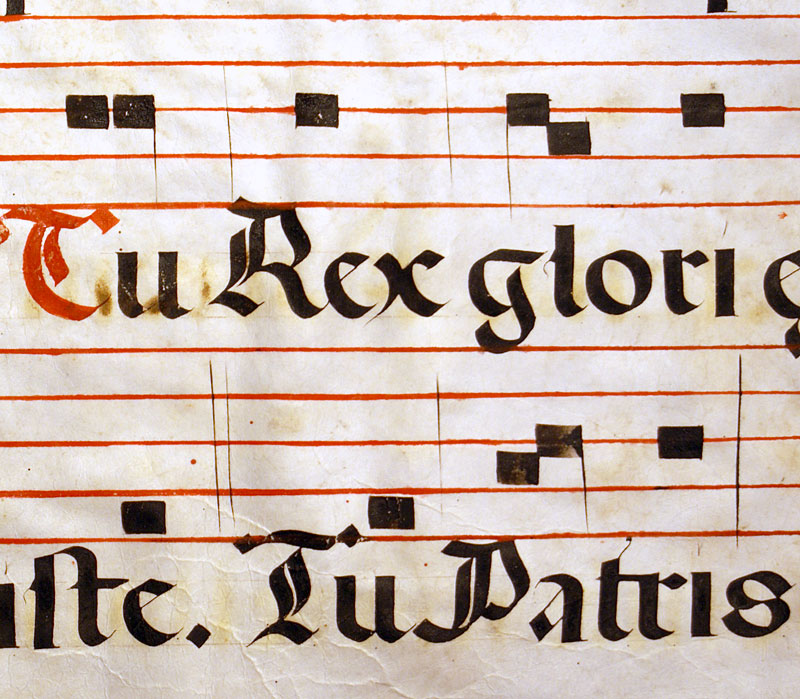 Tu Rex glori ę
uste. Tu Patris